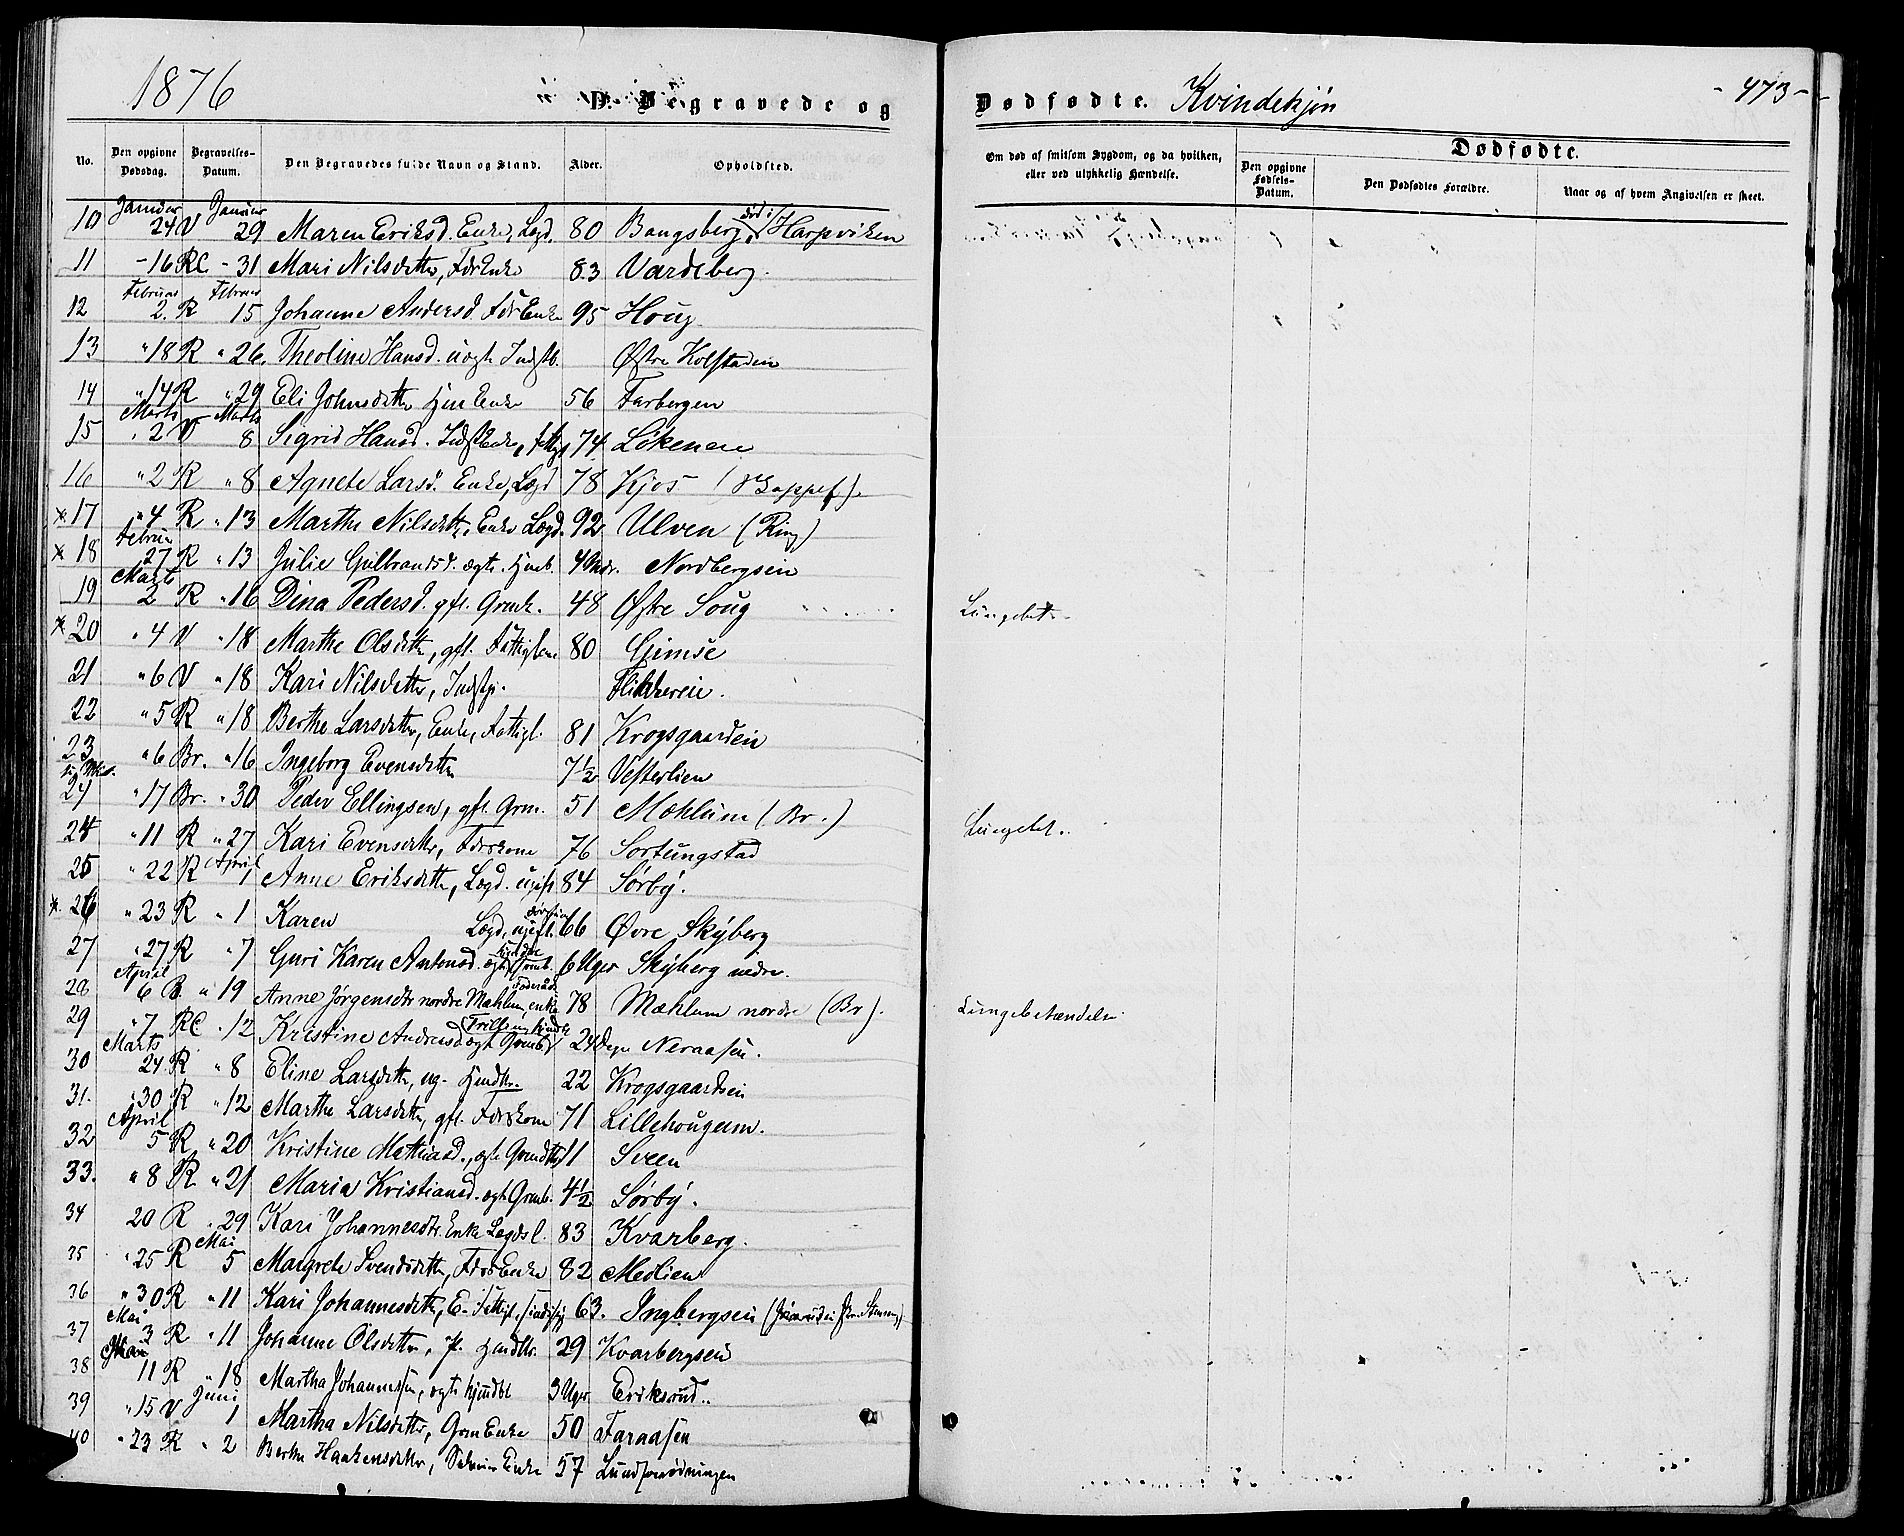 1876
D. Begravede og
Dødfødte. Kvindekjøn
- 473 -
No.
Den opgivne Dødsdag.
Begravelses-Datum.
Den Begravedes fulde Navn og Stand.
Alder.
Opholdsted.
Om død af smitsom Sygdom, og da hvilken, eller ved ulykkelig Hændelse.
Dødfødte.
Den opgivne Fødsels-Datum.
Den Dødfødtes Forældre.
Naar og af hvem Angivelsen er skeet.
Januar Januar
10 24 V 29 Maren Eriksd. Enke, Legd. 80 Bangsberg, død i Harpviken
11 - 16 RC - 31 Mari Nilsdatter, FdrEnke 83 Vardeberg.
Februar Februar
12 2. R 15 Johanne Andersd. FdrEnke 95 Houg
13 " 18 R " 26 Theoline Hansd. uægte Indstb. Østre Kolstaden
14 " 14 R " 29 Eli Johnsdattr Hus Enke 56 Farbergen
Marts Marts
15 " 2 V 8 Sigrid Hansd. IndstEnke, fattigl 74 Løkenen
16 " 2 R " 8 Agnete Larsd. Enke, Legd 78 Kjos
x 17 " 4 R " 13 Marthe Nilsdattr, Enke Lægd. 92 Ulven (Ring)
Februar
x 18 27 R " 13 Julie Gulbrandsd. ægte Husb. 4 Mdr. Nordbergsein
Marts
19 2 R " 16 Dina Pedersd. gft. Grmk. 48 Østre Soug Lungebet.
x 20 " 4 V " 18 Marthe Olsdattr, gft. Fattiglem 80 Gimse
21 " 6 V " 18 Kari Nilsdatter, Indstp. Flikkereie.
22 " 5 R " 18 Berthe Larsdatter, Enke, Fattigl. 81 Krogsgaardein
23 " 6 Br. " 16 Ingeborg Evensdattr 7½ Vesterlien
24 " 17 Br. " 30 Peder Ellingsen, gft. Grm. 51 Mæhlum (Br.)
24 " 11 R " 27 Kari Evensdattr, Fdrskone 76 Sortungstad Lungebet.
April
25 " 22 R 1 Anne Eriksdattr, Legd. ugift 84 Sørby.
x. 26 " 23 R " 1 Karen Lægd, ugift. 66 Øvre Skyberg
27 " 27 R " 7 Guri Karen Antonsd. ægte 6 Uger Skyberg nedre.
April
28 6 B. " 19 Anne Jørgensdtr nordre Mæhlum, enke 78 Mæhlum nordre (Br). Lungebetændelse
29 " 7 RC " 12 Kristine Andersd ægt Grmb. 24 Dage Neraasen.
Marts
30 24. R " 8 Eline Larsdattr, ug. 22 Krogsgaardsei
31. " 30 R " 12 Marthe Larsdattr, gft. Fdrskone 71 Lillehougeim.
April
32 5 R " 20 Kristine Mathiasd., ægte 11 Sveen
33. " 8 R " 21 Maria Kristiansd. ægt Grmb. 4½ Sørby.
34 20 R " 29 Kari Johannesdtr. Enke Legdsl. 83 Kvarberg.
Mai
35 " 25 R 5 Margrete Svendsdattr, FdrsEnke 82 Medlien
36 " 30 R " 11 Kari Johannesdattr, E- Fattigl. 63. Ingbergsei
Mai
37 3 R " 11 Johanne Olsdattr, P. 29 Kvarbergsein
Mai
38 11 R " 18 Martha Johannssen, ægte 3 Uger Eriksrud..
Juni
39 " 15 V 1 Martha Nilsdattr, GrmEnke 50 Faraasen
40 " 23 R " 2 Berthe Haakensdattr, Enke 57